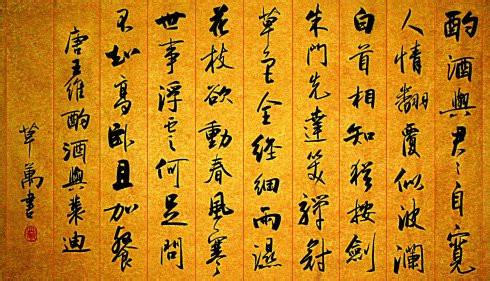 酌酒與君々自寬
人情翻覆似波瀾
白首相知猶按劍
朱門先達笑彈冠
草色全経細雨濕
花枝欲動春風寒
世事浮雲何足問
不如高臥且加餐
唐王維酌酒與裴迪
萬書